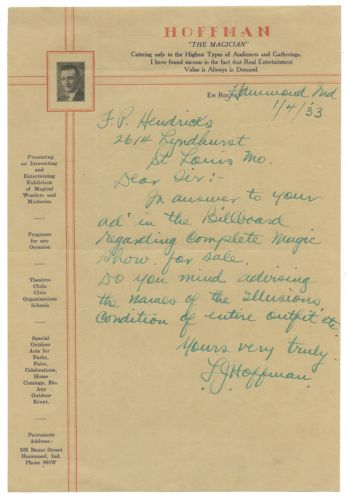 HOFFMAN
"THE MAGICIAN"
Catering only to the Highest Types of Audiences and Gatherings,
I have found success in the fact that Real Entertainment
Value is Always in Demand.
EN ROUTE Hammond Ind
1/4/33
F. P. Hendricks
2614 Lyndhurst
St Louis Mo.
Dear Sir:-
In answer to your
ad' in the Billboard
regarding Complete Magic
Show. for sale.
Do you mind advising
the names of the Illusions
Condition of entire outfit etc.
Yours very truly
L J Hoffman
Presenting
an Interesting
and
Entertaining
Exhibition
of Magical
Wonders and
Mysteries
Programs
for any
Occasion
Theatres
Clubs
Civic
Organizations
Schools
Special
Outdoor
Acts for
Parks,
Fairs,
Celebrations,
Home
Comings, Etc.
Any
Outdoor
Event.
Permanent
Address:
Bauer Street
Hammond, Ind.
Phone